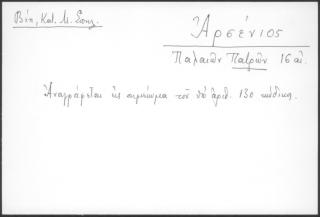 Βέη, Κατ. Μ. Σουμ.
Ἀρσένιος
Παλαιῶν Πατρῶν 16 αἰ.
Ἀναγράφεται εἰς σημείωμα τοῦ ὑπ' ἀριθ. 130 κώδικος.